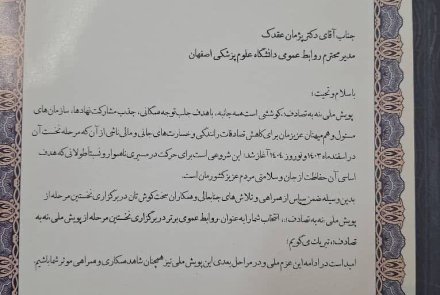 جناب آقای دکتر پژمان عقدک
مدیر محترم روابط عمومی دانشگاه علوم پزشکی اصفهان
با سلام و تحیت؛
پویش ملی «نه به تصادف»، کوششی است همه جانبه، با هدف جلب توجه همگانی، جذب مشارکت نهادها، سازمان های
مسئول و هم میهنان عزیزمان برای کاهش تصادفات رانندگی و خسارت های جانی و مالی ناشی از آن که مرحله نخست آن
در اسفند ماه ۱۴۰۳ و نوروز ۱۴۰۴ آغاز شد؛ این شروعی است برای حرکت در مسیری ناهموار و نسبتا طولانی که هدف
اساسی آن حفاظت از جان و سلامتی مردم عزیز کشورمان است.
بدین وسیله ضمن سپاس از همراهی و تلاش های جنابعالی و همکاران سخت کوش تان در برگزاری نخستین مرحله از
پویش ملی «نه به تصادف»، انتخاب شما را به عنوان روابط عمومی برتر در برگزاری نخستین مرحله از پویش ملی «نه به
تصادف»، تبریک می گویم؛
امید است در ادامه این عزم ملی و در مراحل بعدی این پویش ملی نیز همچنان شاهد همکاری و همراهی موثر شما باشیم.